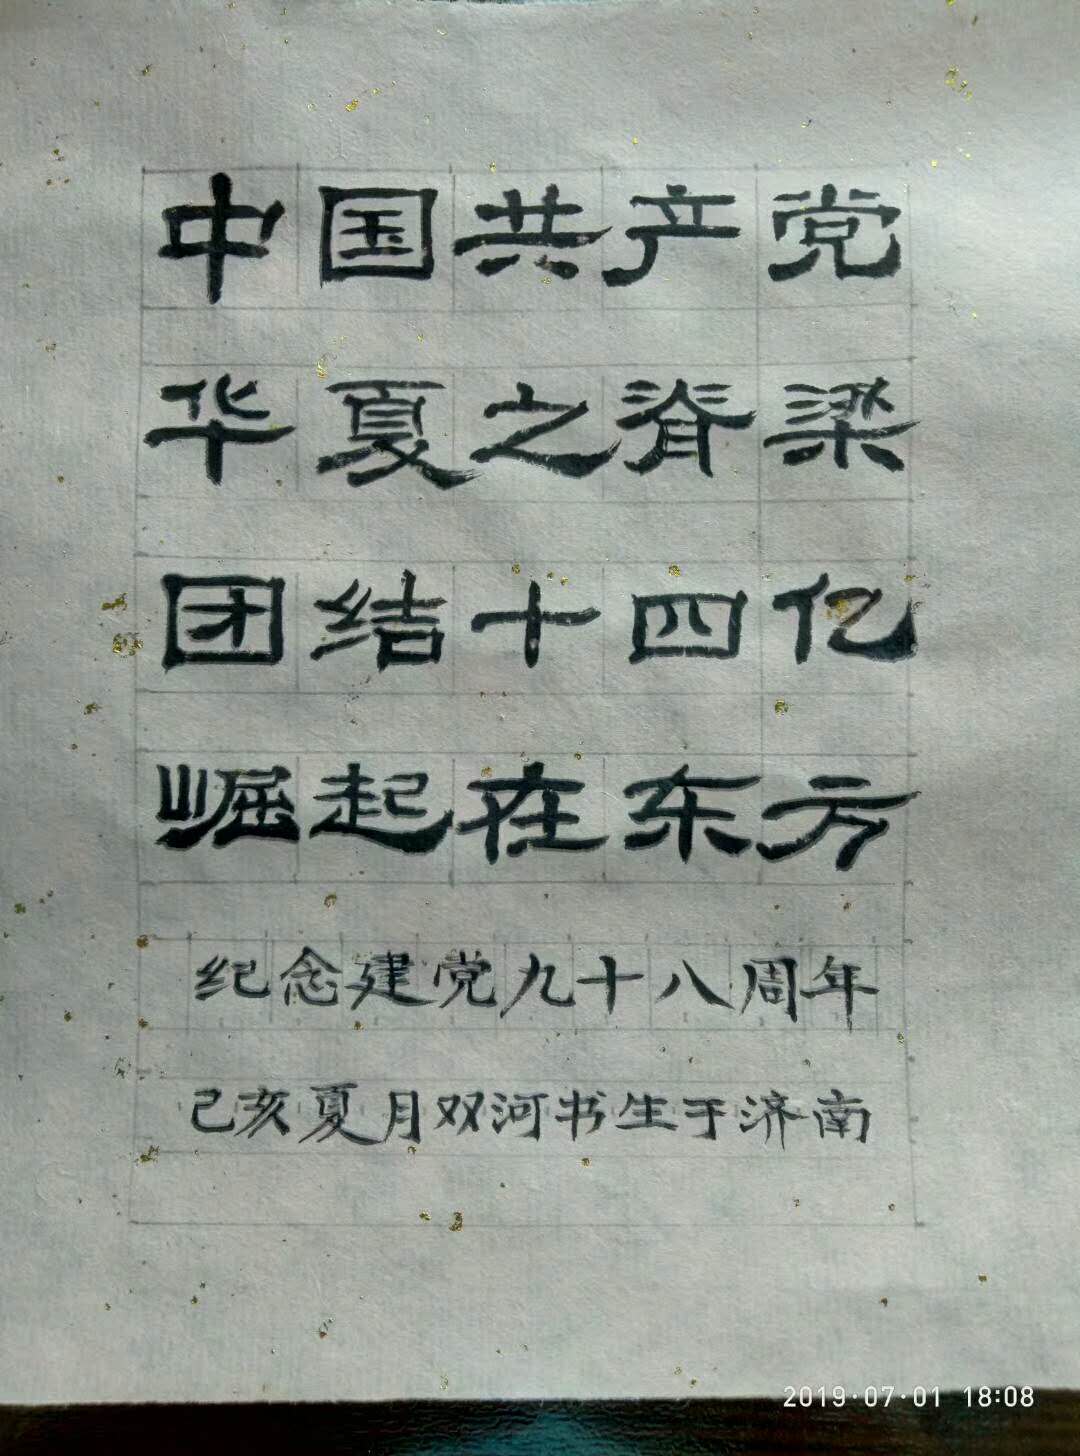 中国共产党
华夏之脊梁
团结十四亿
崛起在东方
纪念建党九十八周年
己亥夏月双河书生于济南
2019·07·01 18:08